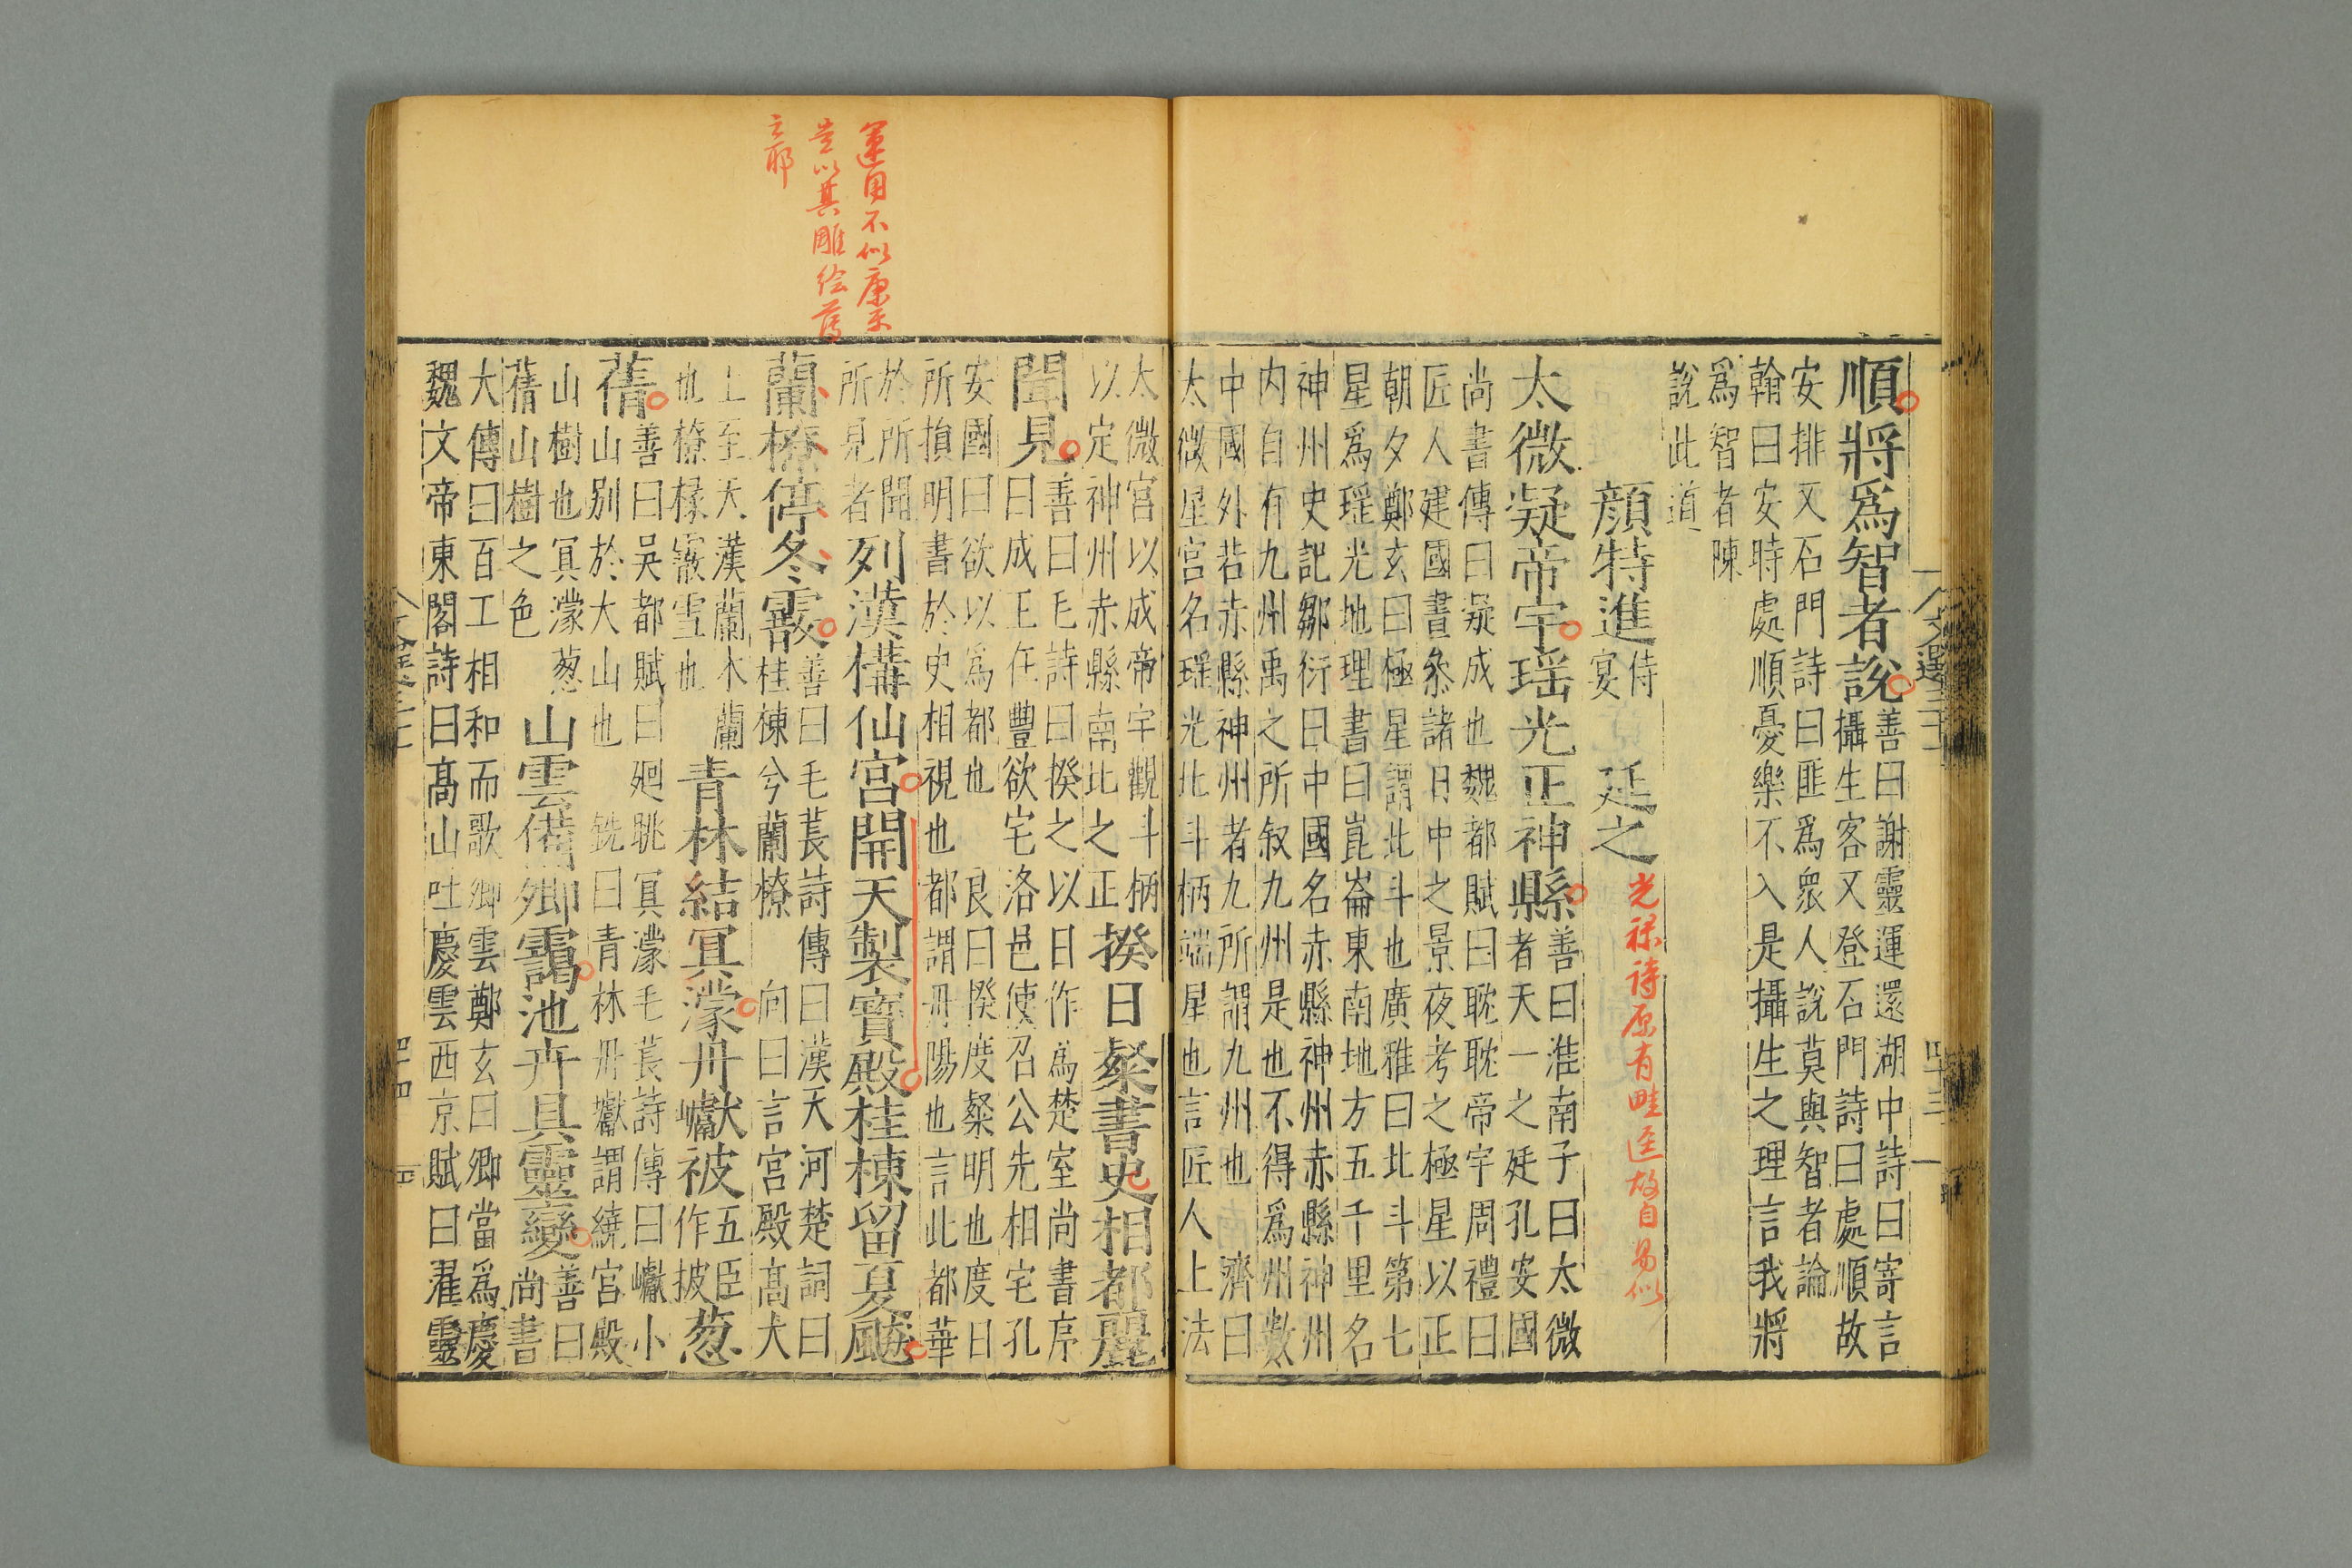 順將爲智者說
善曰謝靈運還湖中詩曰寄言
攝生客又登石門詩曰處順故
安排又石門詩曰匪爲衆人說莫與智者論
翰曰安時處順憂樂不入是攝生之理言我將
爲智者陳
說此道
顔特進
侍
宴
延之
光祿詩原有畦逕故自易似
太微凝帝宇瑶光正神縣
善曰淮南子曰太微
者天一之廷孔安國
尚書傳曰凝成也魏都賦曰耽耽帝宇周禮曰
匠人建國晝叅諸日中之景夜考之極星以正
朝夕鄭玄曰極星謂北斗也廣雅曰北斗第七
星爲瑶光地理書曰崑崙東南地方五千里名
神州史記鄒衍曰中國名赤縣神州赤縣神州
内自有九州禹之所叙九州是也不得爲州數
中國外若赤縣神州者九所謂九州也 濟曰
太微星宮名瑶光北斗柄端星也言匠人上法
太微宮以成帝宇觀斗柄
以定神州赤縣南北之正
揆日粲書史相都麗
聞見
善曰毛詩曰揆之以日作爲楚室尚書序
曰成王在豐欲宅洛邑使召公先相宅孔
安國曰欲以爲都也 良曰揆度粲明也度日
所損明書於史相視也都謂丹陽也言此都華
於所聞
所見者
列漢構仙宮開天製寳殿桂棟留夏飈
蘭橑停冬霰
善曰毛萇詩傳曰漢天河楚詞曰
桂棟兮蘭橑 向曰言宮殿高大
上至天漢蘭木蘭
也橑椽霰雪也
青林結冥濛丹巘被
五臣
作披
葱
蒨
善曰吳都賦曰廻眺冥濛毛萇詩傳曰巘小
山别於大山也 銑曰青林丹巘謂繞宮殿
山樹也冥濛葱
蒨山樹之色
山雲備卿靄池卉具靈變
善曰
尚書
大傳曰百工相和而歌卿雲鄭玄曰卿當爲慶
魏文帝東閣詩曰高山吐慶雲西京賦曰濯靈
運用不似康樂
豈以其雕繪薄
之耶
文選三十一
四十三
四十四